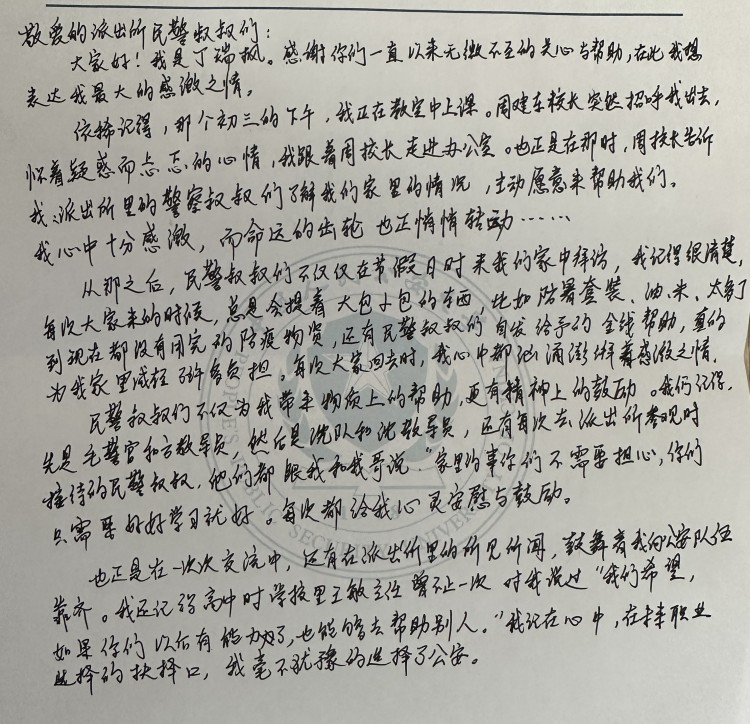 敬爱的派出所民警叔叔们:
大家好!我是丁瑞枫。感谢你们一直以来无微不至的关心与帮助,在此我想
表达我最大的感激之情。
依稀记得,那个初三的下午,我正在教室中上课。周建东校长突然招呼我出去,
怀着疑惑而忐忑的心情,我跟着周校长走进办公室。也正是在那时,周校长告诉
我:派出所里的警察叔叔们了解我们家里的情况,主动愿意来帮助我们。
我心中十分感激,而命运的齿轮也正悄悄转动……
从那之后,民警叔叔们不仅仅在节假日时来我们家中拜访,我记得很清楚,
每次大家来的时候,总是会提着大包小包的东西,比如防暑套装、油、米、太多了
到现在都没有用完的防疫物资,还有民警叔叔们自发给予的金钱帮助,真的
为我家里减轻了许多负担。每次大家回去时,我心中都汹涌澎湃着感激之情。
民警叔叔们不仅为我带来物质上的帮助,更有精神上的鼓励。我仍记得,
先是毛警官和方教导员,然后是沈队和沈教导员,还有每次去派出所参观时
接待的民警叔叔,他们都跟我和我哥说"家里的事你们不需要担心,你们
只需要好好学习就好。每次都给我心灵安慰与鼓励。
也正是在一次次交流中,还有在派出所里的所见所闻,鼓舞着我向公安队伍
靠齐。我还记得高中时学校里王敏主任曾不止一次对我说过"我们希望,
如果你们以后有能力了,也能够去帮助别人。"我记在心中,在择职业
选择的抉择口,我毫不犹豫的选择了公安。
PUBLIC SECURITY UNIVERSITY